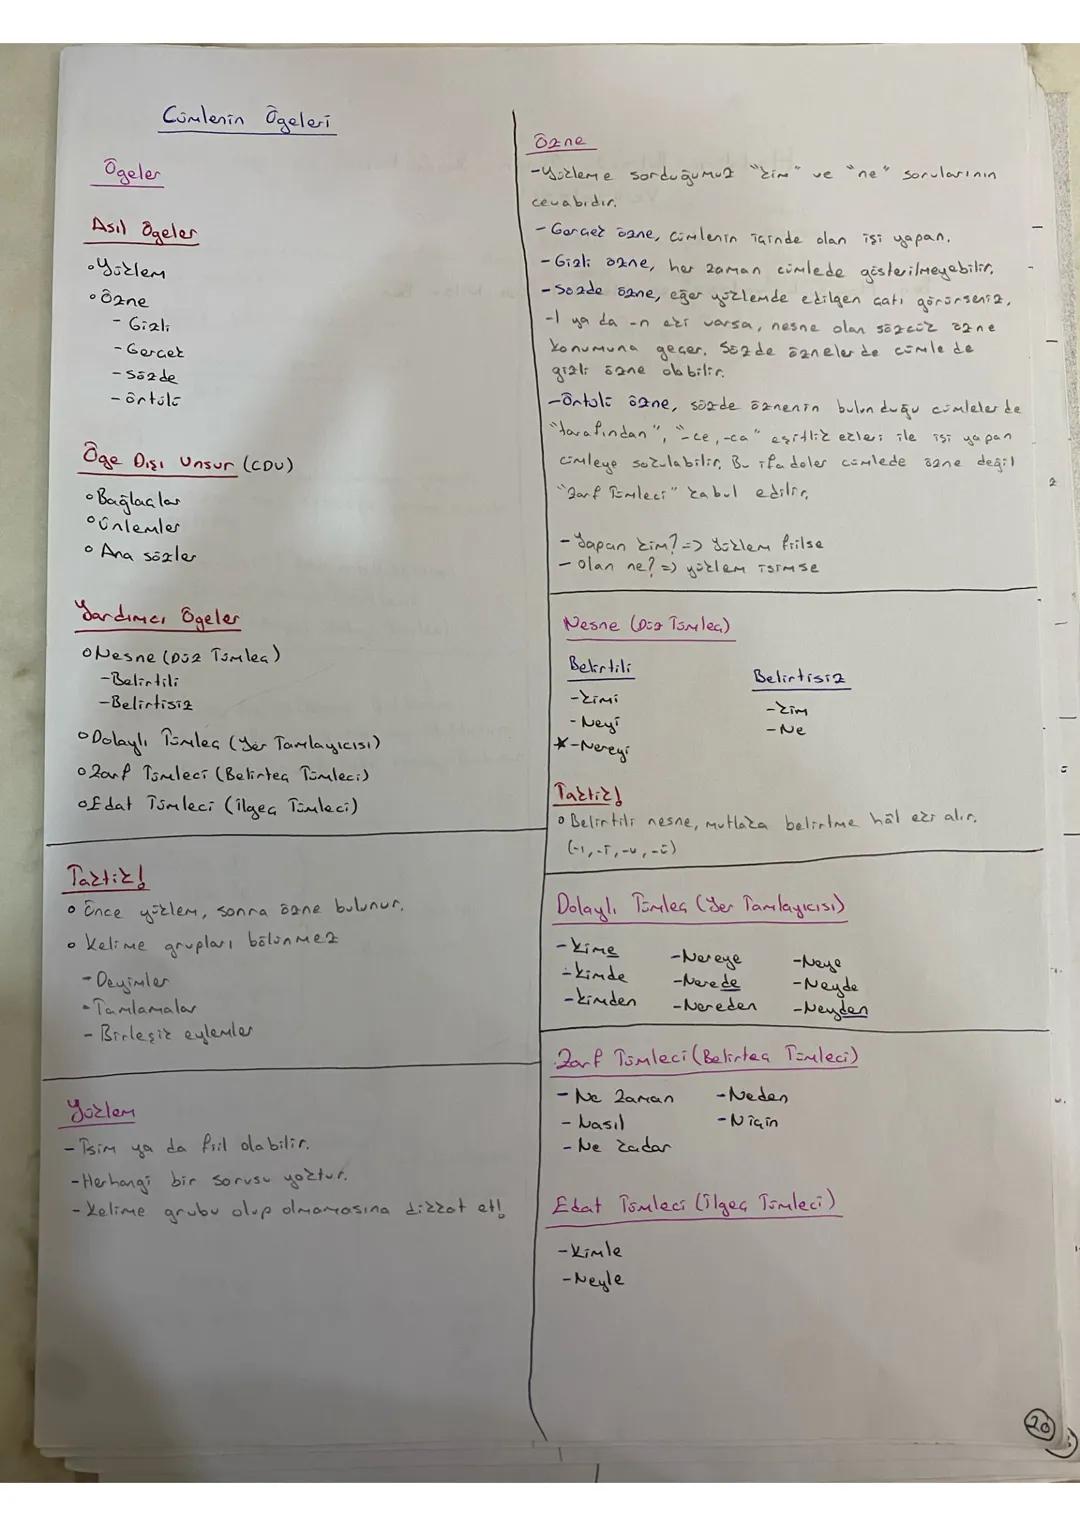 Cümlenin Ögeleri
Ögeler
Asıl Ögeler
• Yüklem
• Özne
- Gizli
- Gerçek
- Sözde
- örtülü
Öge Dışı Unsur (CDU)
• Bağlaçlar
• Ünlemler
• Ana sözler
Yardımcı Ögeler
• Nesne (Düz Tümleç)
- Belirtili
- Belirtisiz
• Dolaylı Tümleç (Yer Tamlayıcısı)
• Zarf Tümleci (Belirteç Tümleci)
• Edat Tümleci (ilgeç Tümleci)
Taktik!
• Önce yüklem, sonra özne bulunur.
• Kelime grupları bölünmez
- Deyimler
- Tamlamalar
- Birleşik eylemler
Yüklem
- İsim ya da fiil olabilir.
- Herhangi bir sorusu yoktur.
- Kelime grubu olup olmamasına dikkat et!
Özne
- Yükleme sorduğumuz "kim" ve "ne" sorularının
cevabıdır.
- Gerçek özne, cümlenin içinde olan işi yapan.
- Gizli özne, her zaman cümlede gösterilmeyebilir.
- Sözde özne, eğer yüklemde edilgen çatı görürseniz,
-l ya da -n eki varsa, nesne olan sözcük özne
konumuna geçer. Sözde özneler de cümlede
gizli özne olabilir.
- Örtülü özne, sözde öznenin bulunduğu cümlelerde
"tarafından", "-ce, -ca" eşitlik ekleri ile işi yapan
cümleye sokulabilir. Bu ifadeler cümlede özne değil
"Zarf Tümleci" kabul edilir.
- Yapan kim? => Yüklem fiilse
- Olan ne? => yüklem isimse
Nesne (Düz Tümleç)
Belirtili
- Kimi
- Neyi
* - Nereyi
Belirtisiz
- Kim
- Ne
Taktik!
• Belirtili nesne, mutlaka belirtme hâl eki alır.
(-ı, -i, -u, -ü)
Dolaylı Tümleç (Yer Tamlayıcısı)
- Kime - Nereye - Neye
- Kimde - Nerede - Neyde
- Kimden - Nereden - Neyden
Zarf Tümleci (Belirteç Tümleci)
- Ne zaman - Neden
- Nasıl - Niçin
- Ne kadar
Edat Tümleci (İlgeç Tümleci)
- Kimle
- Neyle
20